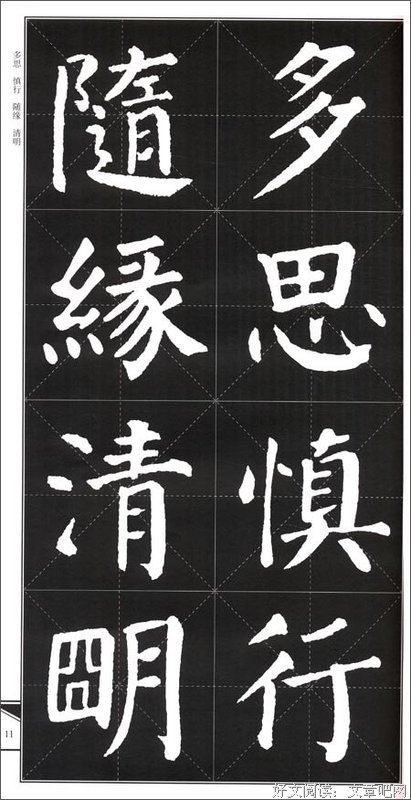 多思慎行
隨緣清明
多思 慎行 随缘 清明
11
好文阅读：文章吧网